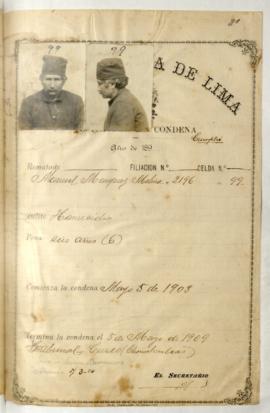 99 99
A DE LIMA
CONDENA
Cumplió
Año de 189
Rematado FILIACION N.º CELDA N.º
Manuel 2196 99
Homicidio
Pena seis años (6)
Comienza la condena Mayo 5 de 1903
Termina la condena el 5 de Mayo de 1909
Tribunal, Cuzco
EL SECRETARIO